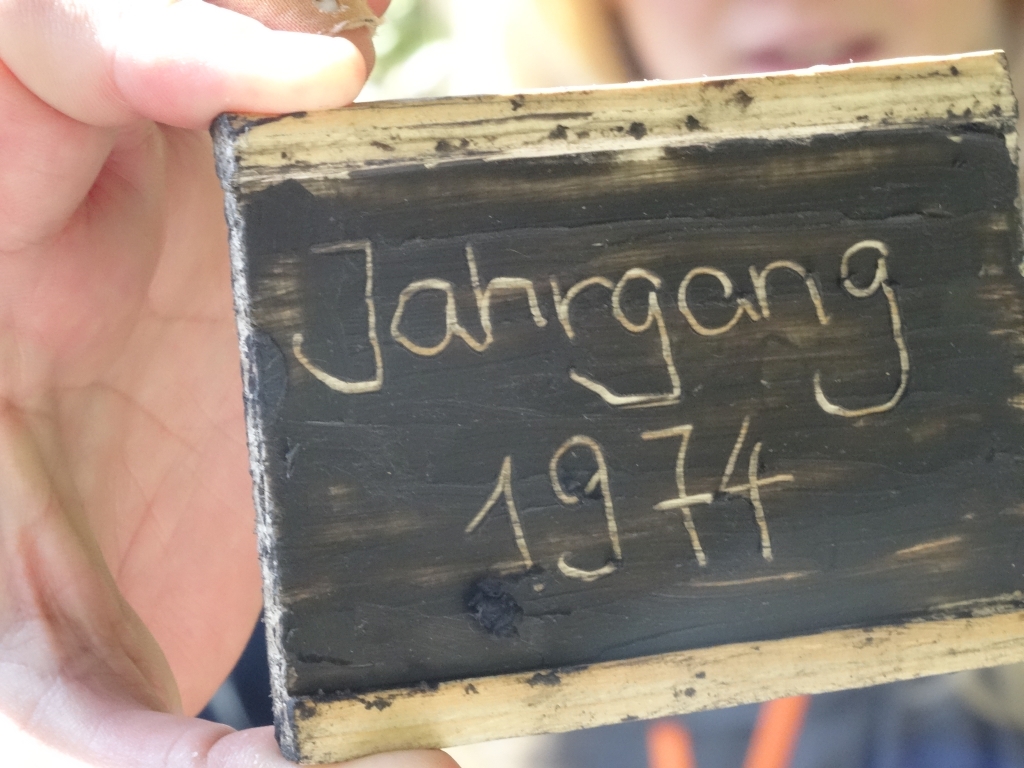 Jahrgang
1974